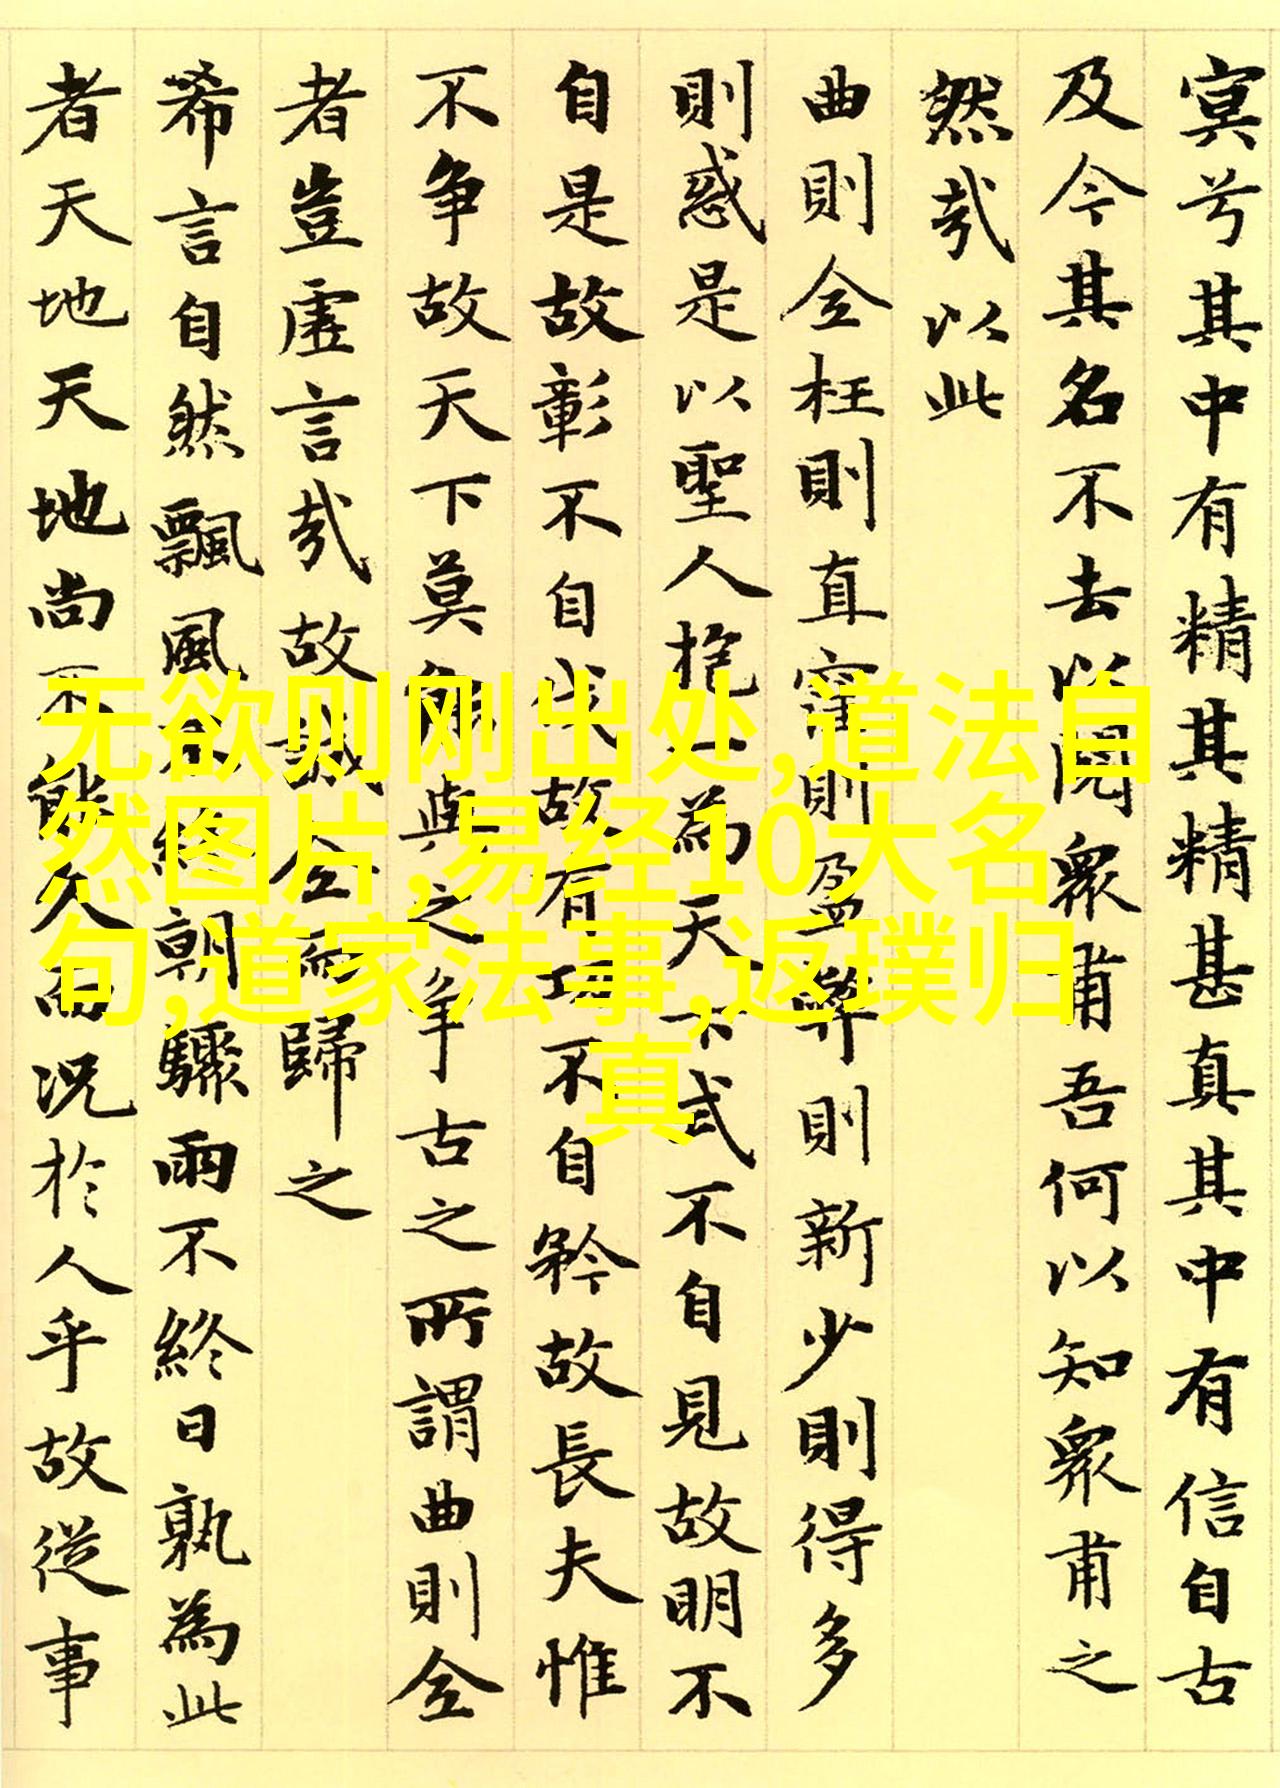 㝠兮其中有精其精甚真其中有信自古
及今其名不去以閱衆甫吾何以知衆甫之
然哉以此
曲則全枉則直窪則盈弊則新少則得多
則惑是以聖人抱一為天下式不自見故明不
自是故彰不自伐故有功不自矜故長夫惟
不争故天下莫能與之争古之所謂曲則全
者豈虛言哉故誠全而歸之
希言自然飄風不終朝驟雨不終日孰為此
者天地天地尚不能久而況於人乎故從事
无欲则刚出处,道法自
然图片,易经10大名
句,道家法事,返璞归
真